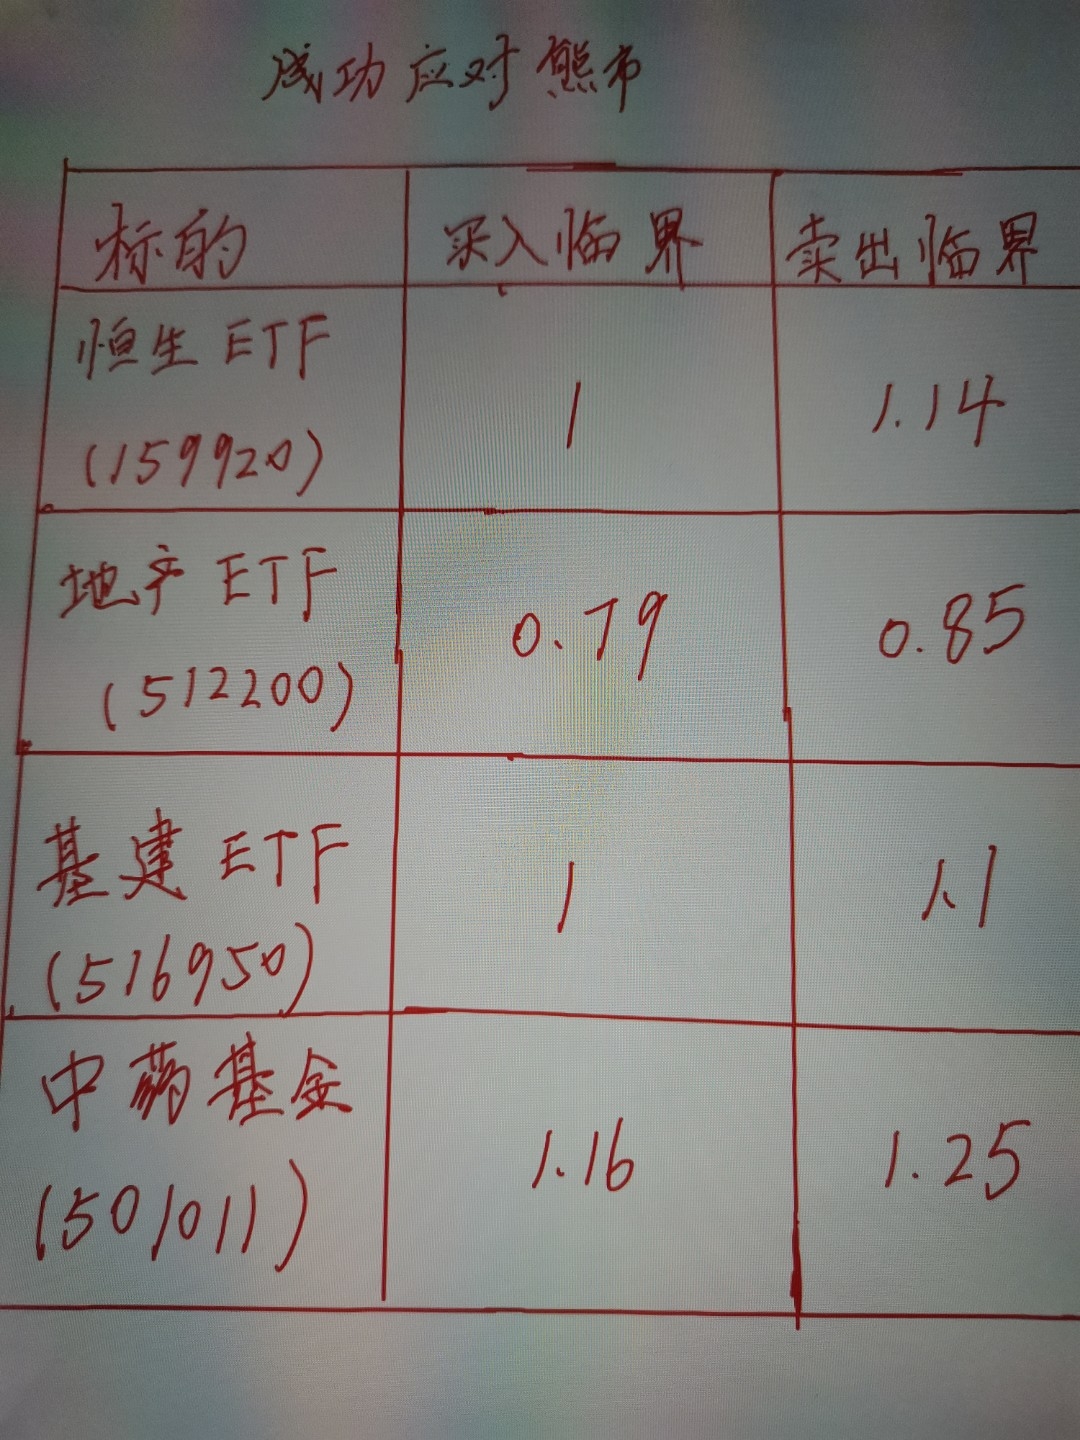 成功应对熊市
标的 买入临界 卖出临界
恒生ETF
(159920) 1 1.14
地产ETF
(512200) 0.79 0.85
基建ETF
(516950) 1 1.1
中药基金
(501011) 1.16 1.25